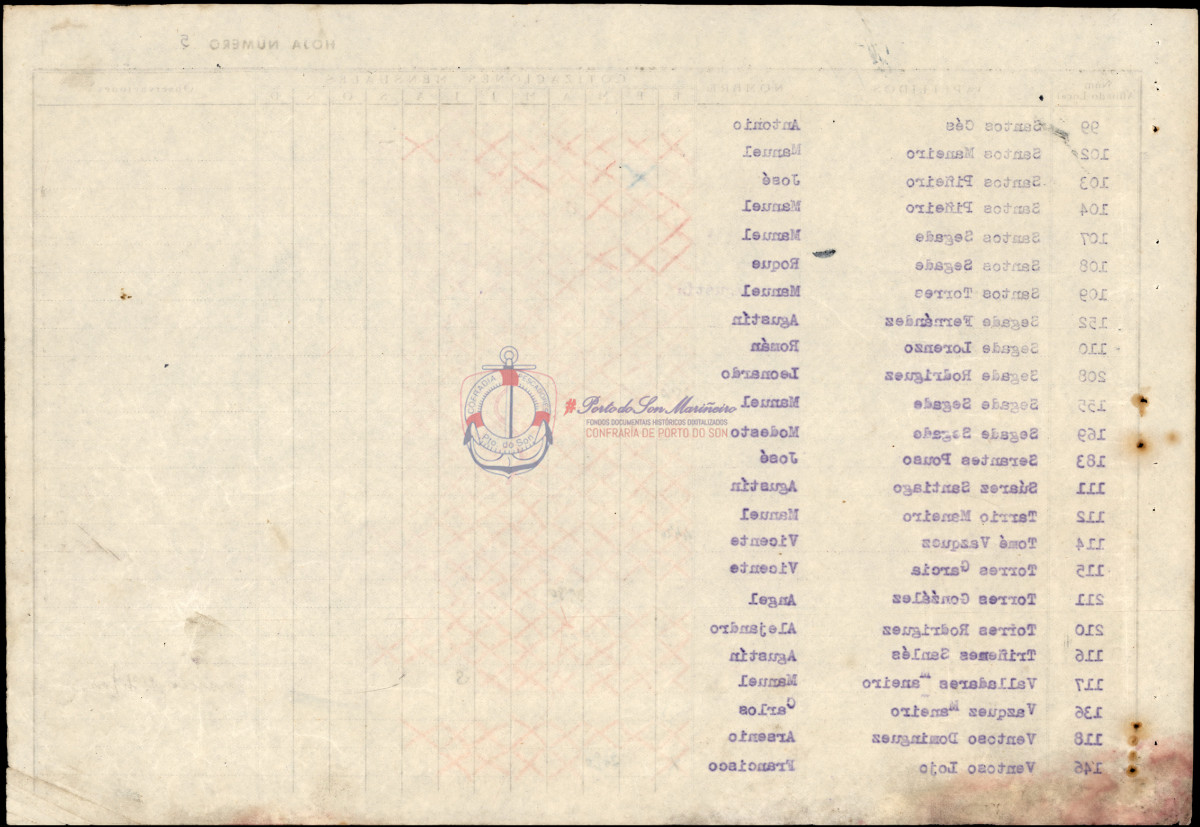 HOJA NUMERO 5
COTIZACIONES MENSUALES
Núm. Afiliado Local APELLIDOS NOMBRE E F M A M J J A S O N D Observaciones
99 Santos Cés Antonio
102 Santos Maneiro Manuel
103 Santos Piñeiro José
104 Santos Piñeiro Manuel
107 Santos Segade Manuel
108 Santos Segade Roque
109 Santos Torres Manuel
152 Segade Fernández Agustín
110 Segade Lorenzo Román
208 Segade Rodriguez Leonardo
155 Segade Segade Manuel
169 Segade Segade Modesto
183 Serantes Pouso José
111 Súarez Santiago Agustín
112 Tarrio Maneiro Manuel
114 Tomé Vazquez Vicente
115 Torres Garcia Vicente
211 Torres González Angel
210 Torres Rodriguez Alejandro
116 Triñenes Sanlés Agustín
117 Valladares Maneiro Manuel
136 Vazquez Maneiro Carlos
118 Ventoso Dominguez Arsenio
146 Ventoso Lojo Francisco
COFRADIA PESCADORES
Pto. do Son
# Porto do Son Mariñeiro
FONDOS DOCUMENTAIS HISTÓRICOS DIXITALIZADOS
CONFRARÍA DE PORTO DO SON